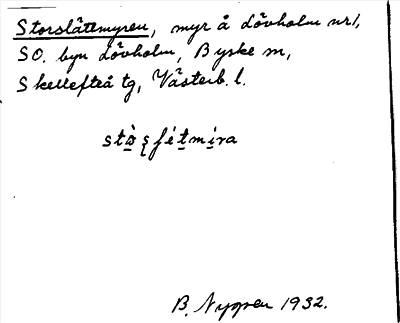 Storslåttmyren, myr å Lövholm nr1,
SO. byn Lövholm, Byske sn,
Skellefteå tg, Västerb. l.
B. Nygren 1932.